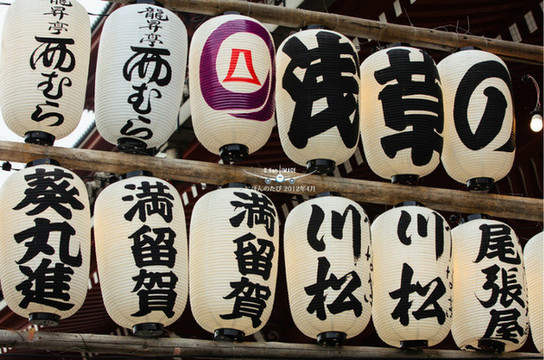 龍昇亭
西むら
龍昇亭
西むら
浅
草
の
葵丸進
満留賀
満留賀
川松
川松
尾張屋
にほんのたび 2012年4月